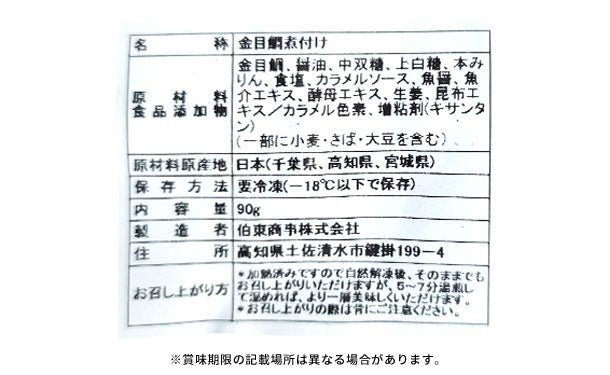 名 称 金目鯛煮付け
原材料 食品添加物 金目鯛、醤油、中双糖、上白糖、本み
りん、食塩、カラメルソース、魚醤、魚
介エキス、酵母エキス、生姜、昆布エ
キス/カラメル色素、増粘剤(キサンタ
ン)
(一部に小麦・さば・大豆を含む)
原材料原産地 日本(千葉県、高知県、宮城県)
保存方法 要冷凍(-18℃以下で保存)
内容量 90g
製造者 伯東商事株式会社
住所 高知県土佐清水市鍵掛199-4
お召し上がり方 *加熱済みですので自然解凍後、そのままでも
お召し上がりいただけますが、5~7分湯煎し
て温めれば、より一層美味しくいただけます。
*お召し上がりの際は骨にご注意ください。
※賞味期限の記載場所は異なる場合があります。